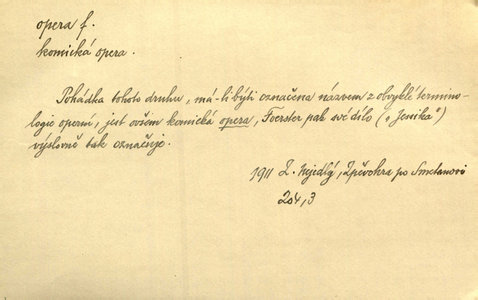 opera f.
komická opera.
Pohádka tohoto druhu, má-li býti označena názvem z obvyklé termino-
logie operní, jest ovšem komická opera, Foerster pak své dílo („Jenika“)
výslovně tak označuje.
1911 Z. Nejedlý, Zpěvohra po Smetanovi
204,3